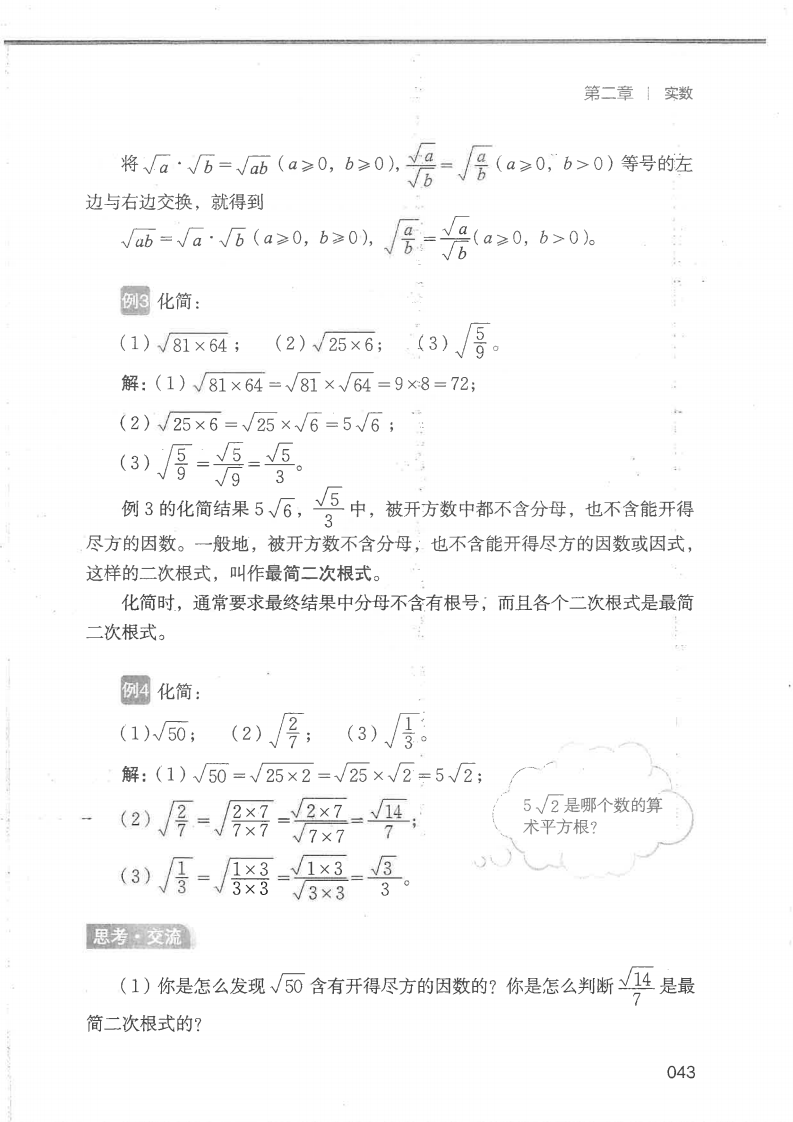 第二章 | 实数
将√a·√b=√ab(a≥0,b≥0),√a/√b=√(a/b)(a≥0,b>0)等号的左
边与右边交换,就得到
√ab=√a·√b(a≥0,b≥0),√(a/b)=√a/√b(a≥0,b>0)。
例3 化简:
(1)√(81×64); (2)√(25×6); (3)√(5/9)。
解:(1)√(81×64)=√81×√64=9×8=72;
(2)√(25×6)=√25×√6=5√6;
(3)√(5/9)=√5/√9=√5/3。
例 3 的化简结果 5√6,√5/3 中,被开方数中都不含分母,也不含能开得
尽方的因数。一般地,被开方数不含分母,也不含能开得尽方的因数或因式,
这样的二次根式,叫作最简二次根式。
化简时,通常要求最终结果中分母不含有根号,而且各个二次根式是最简
二次根式。
例4 化简:
(1)√50; (2)√(2/7); (3)√(1/3)。
解:(1)√50=√(25×2)=√25×√2=5√2;
(2)√(2/7)=√((2×7)/(7×7))=√(2×7)/√(7×7)=√14/7;
(3)√(1/3)=√((1×3)/(3×3))=√(1×3)/√(3×3)=√3/3。
5√2是哪个数的算
术平方根?
思考·交流
(1)你是怎么发现√50含有开得尽方的因数的?你是怎么判断√14/7是最
简二次根式的?
043